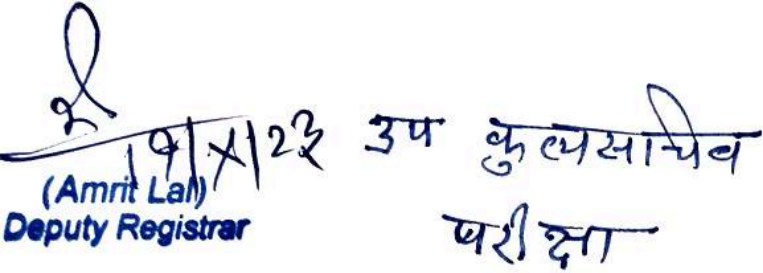 19/X/23 उप कुलसचिव
(Amrit Lal)
Deputy Registrar परीक्षा